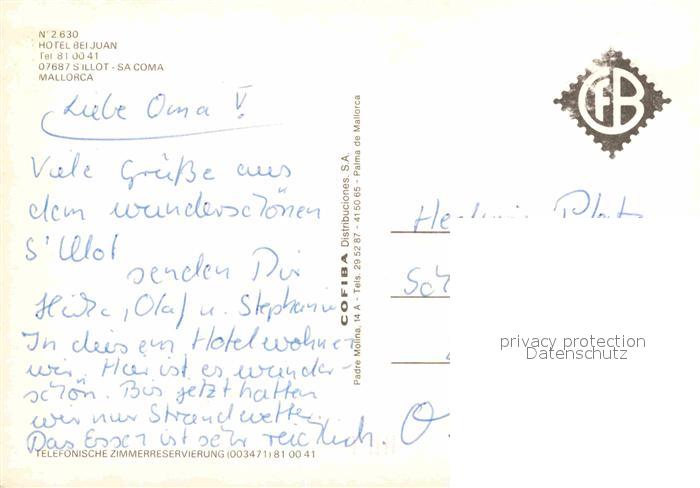 Nº 2.630
HOTEL BEI JUAN
Tel 81 00 41
07687 S'ILLOT - SA COMA
MALLORCA
Liebe Oma !
Viele Grüße aus
dem wunderschönen
S'Illot
senden Dir
Heike, Olaf u. Stephanie
In diesem Hotel wohnen
wir. Hier ist es wunder-
schön. Bis jetzt hatten
wir nur Strandwetter.
Das Essen ist sehr reichlich.
TELEFONISCHE ZIMMERRESERVIERUNG (003471) 81 00 41
COFIBA Distribuciones, S.A.
Padre Molina, 14 A - Tels. 29 52 87 - 41 50 65 - Palma de Mallorca
CFB
privacy protection
Datenschutz